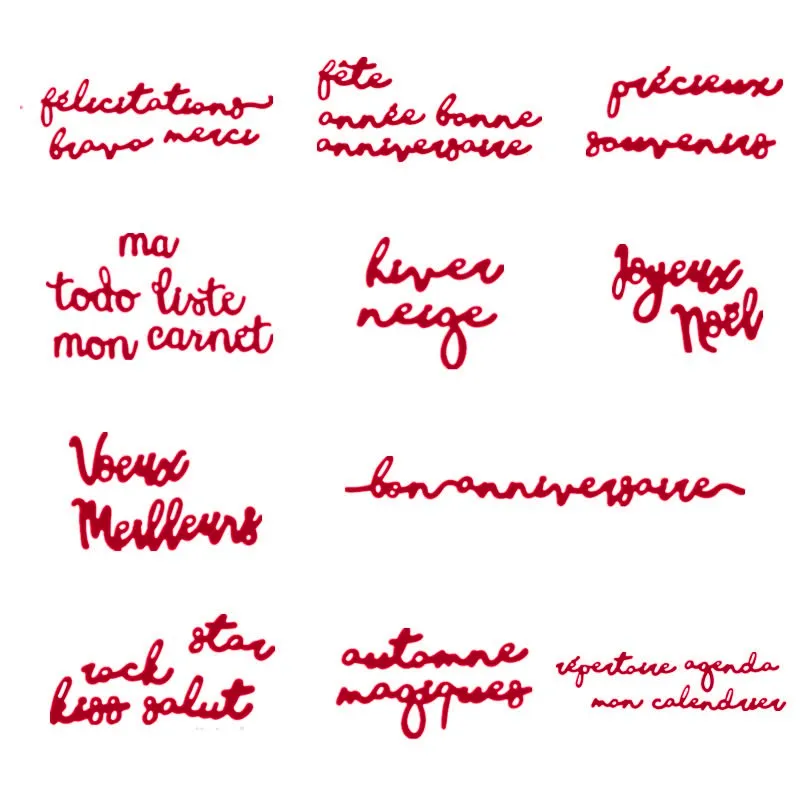 félicitations
bravo merci
fête
année bonne
anniversaire
précieux
souvenirs
ma
todo liste
mon carnet
hiver
neige
Joyeux
Noël
Voeux
Meilleurs
bon anniversaire
star
rock
kiss salut
automne
magiques
répertoire agenda
mon calendrier